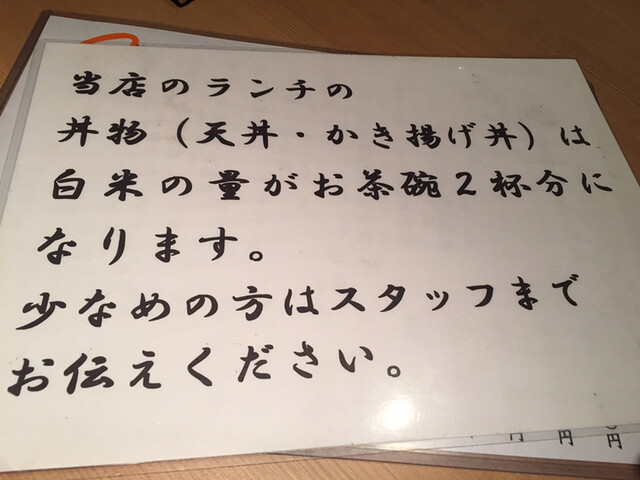 当店のランチの
丼物（天丼・かき揚げ丼）は
白米の量がお茶碗２杯分に
なります。
少なめの方はスタッフまで
お伝えください。
円
円
円